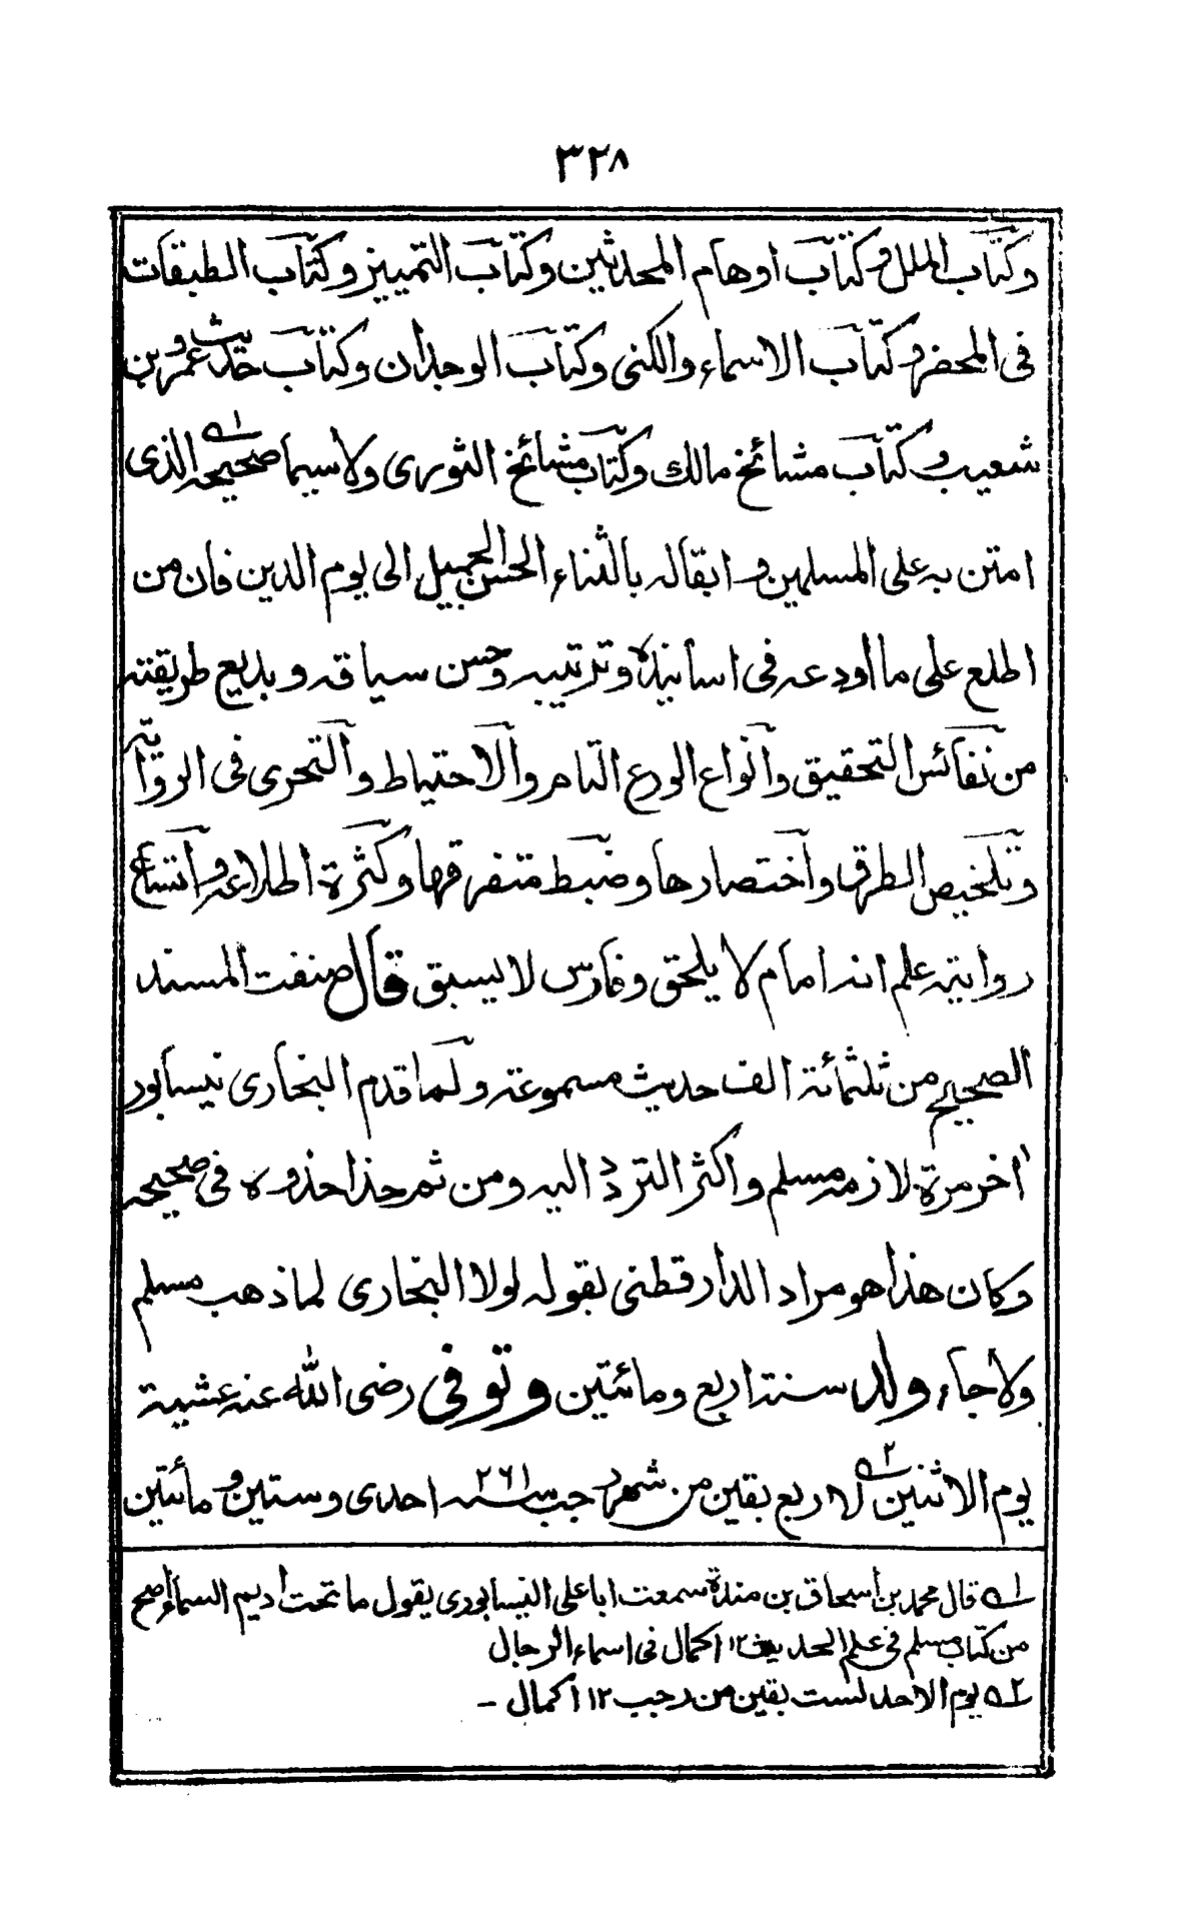 ٣٢٨
وكتاب الملل وكتاب اوهام المحدثين وكتاب التمييز وكتاب الطبقات
فى المحضر وكتاب الاسماء والكنى وكتاب الوحدان وكتاب حديث عمرو بن
شعيب وكتاب مشائخ مالك وكتاب مشائخ الثورى ولاسيما صحيحه الذى
امتن به على المسلمين وابقاله بالثناء الحسن الجميل الى يوم الدين فان من
اطلع على ما اودعه فى اسانيده وترتيبه وحسن سياقه وبديع طريقته
من نفائس التحقيق وانواع الورع التام والاحتياط والتحرى فى الرواية
وتلخيص الطرق واختصارها وضبط متفرقها وكثرة اطلاعه واتساع
روايته علم انه امام لا يلحق وفارس لا يسبق قال صنفت المسند
الصحيح من ثلثمائة الف حديث مسموعة ولما قدم البخارى نيسابور
اخر مرة لازمه مسلم واكثر التردد اليه ومن ثم حذا حذوه فى صحيحه
وكان هذا هو مراد الدارقطنى بقوله لولا البخارى لما ذهب مسلم
ولا جاء ولد سنة اربع ومائتين وتوفى رضى الله عنه عشية
يوم الاثنين ٢ لاربع بقين من شهر رجب سنه ٢٦١ احدى وستين ومأتين
١ قال محمد بن اسحاق بن مندة سمعت ابا على النيسابورى يقول ما تحت اديم السماء اصح
من كتاب مسلم فى علم الحديث ١٢ اكمال فى اسماء الرجال
٢ يوم الاحد لست بقين من رجب ١٢ اكمال –